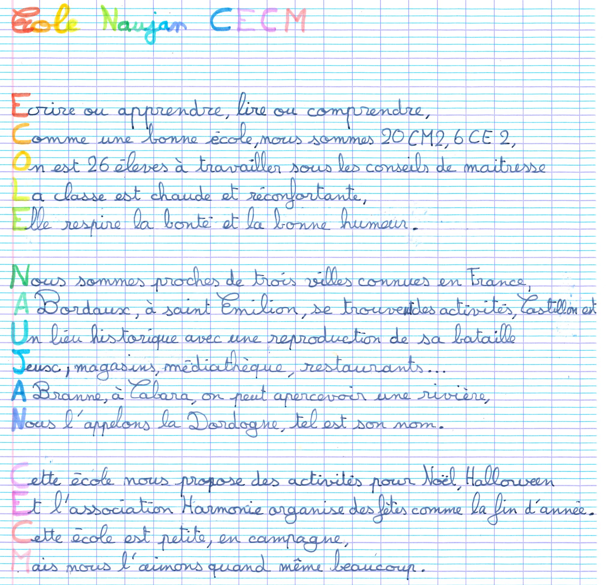 École Naujan CECM
Ecrire ou apprendre, lire ou comprendre,
Comme une bonne école, nous sommes 20 CM2, 6 CE2,
On est 26 éleves à travailler sous les conseils de maitresse
La classe est chaude et réconfortante,
Elle respire la bonté et la bonne humeur.
Nous sommes proches de trois villes connues en France,
A Bordaux, à saint Emilion, se trouvent des activités, Castillon est
Un lieu historique avec une reproduction de sa bataille
Jeux, magasins, médiathèque, restaurants...
A Branne, à Cabara, on peut apercevoir une rivière,
Nous l'appelons la Dordogne, tel est son nom.
Cette école nous propose des activités pour Noël, Halloween
Et l'association Harmonie organise des fêtes comme la fin d'année.
Cette école est petite, en campagne,
Mais nous l'aimons quand même beaucoup.